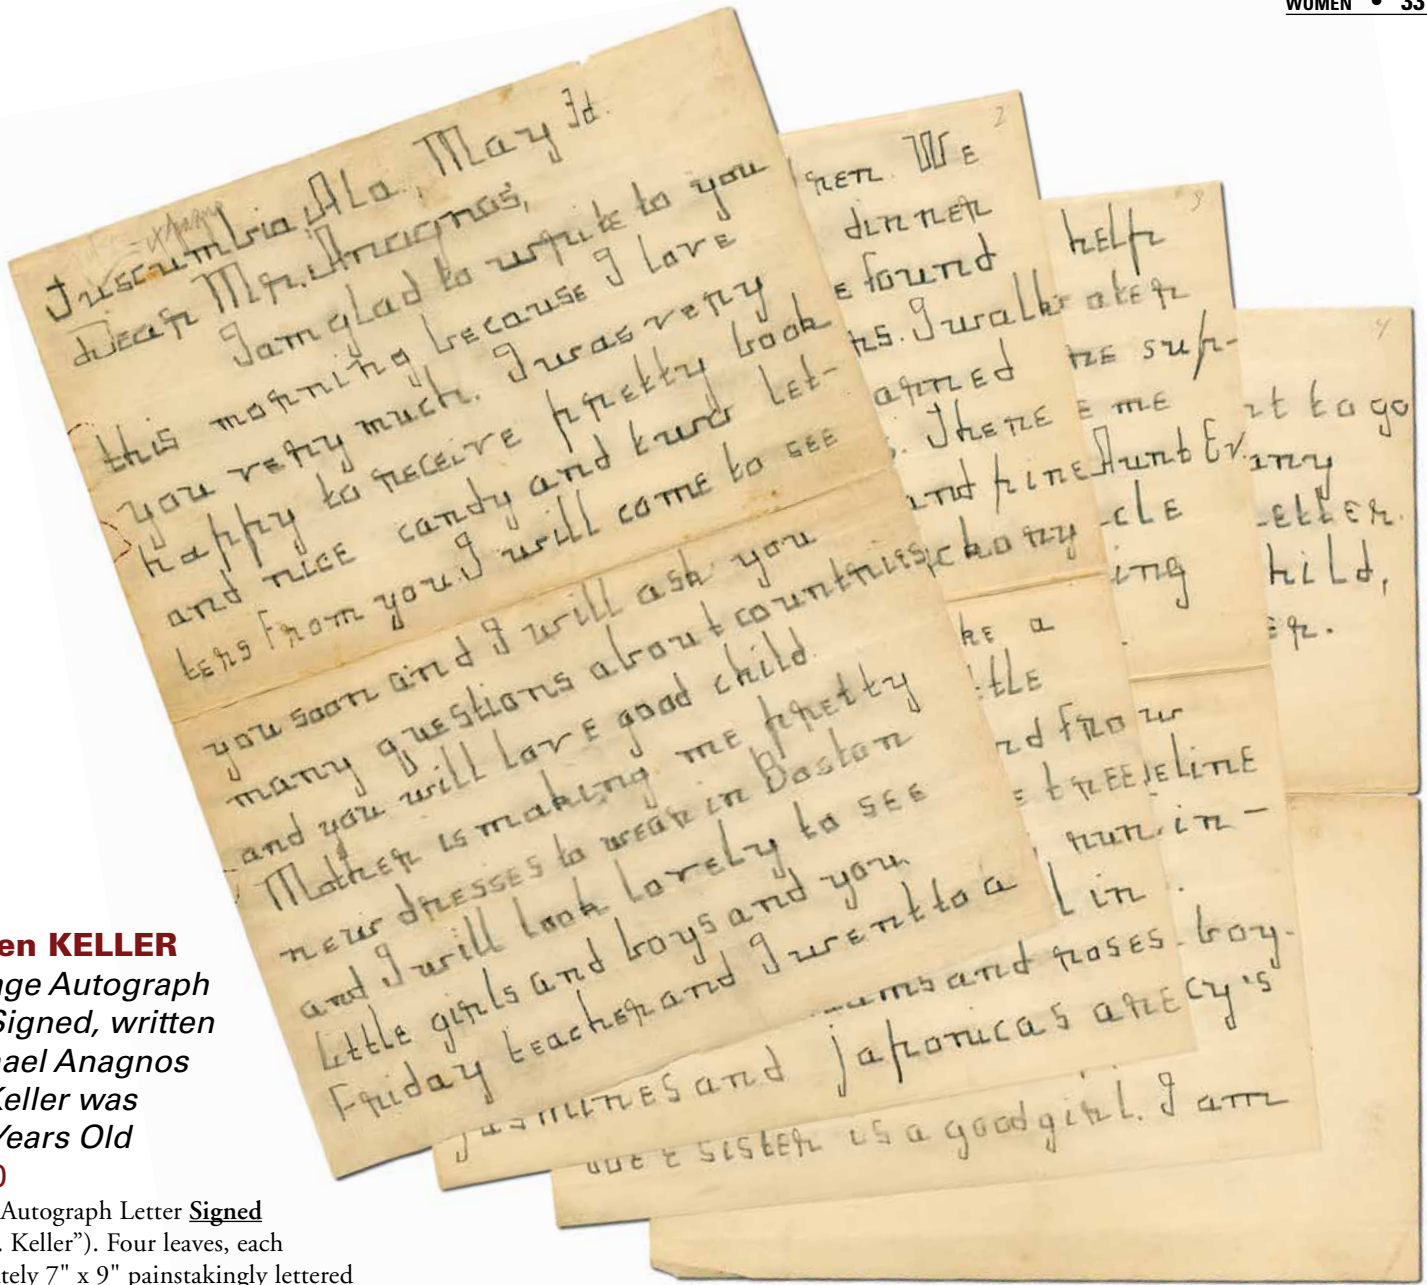 WOMEN • 33
Tuscumbia, Ala., May 3d.
Dear Mr. Anagnos,
I am glad to write to you
this morning because I love
you very much. I was very
happy to receive pretty book
and nice candy and two let-
ters from you. I will come to see
you soon and I will ask you
many questions about countries
and you will love good child.
Mother is making me pretty
new dresses to wear in Boston
and I will look lovely to see
little girls and boys and you.
Friday teacher and I went to a
2
We
dinner
found
I walk
There
and pine
a
and from
tree
run
in
and roses
jasmines and japonicas are
3
help
sup-
me
Aunt Ev
in-
boy.
sister is a good girl. I am
4
to go
child,
KELLER
Autograph
Signed, written
Anagnos
Keller was
Years Old
Autograph Letter Signed
Keller”). Four leaves, each
7" x 9" painstakingly lettered